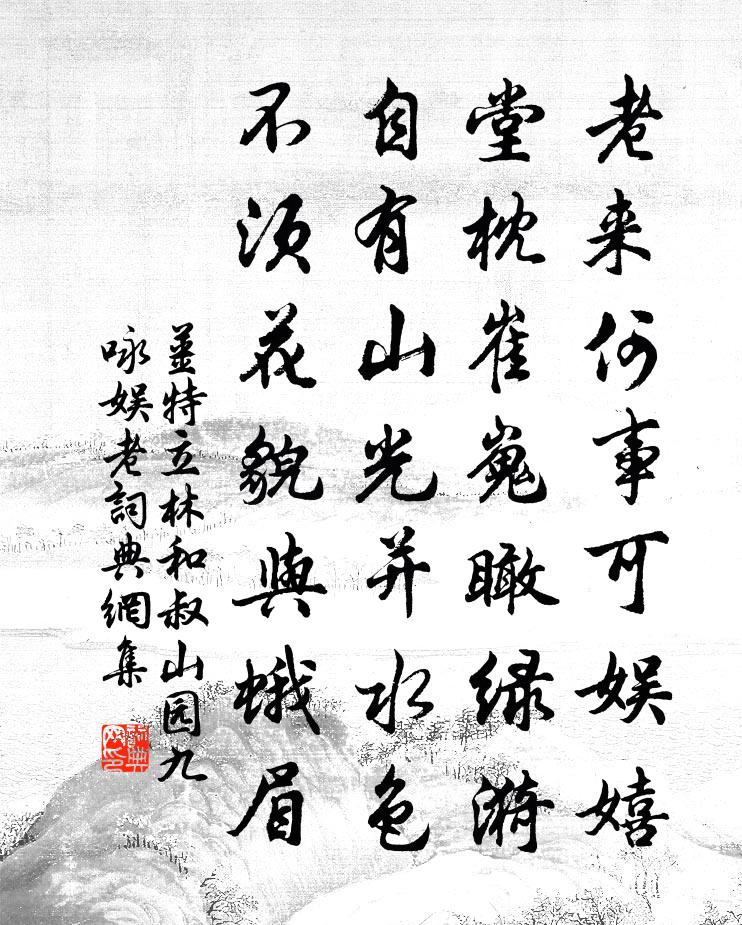 老来何事可娱嬉
堂枕崔嵬瞰绿漪
自有山光并水色
不须花貌與蛾眉
姜特立林和叔山园九
咏娱老詞典網集
詞典網印